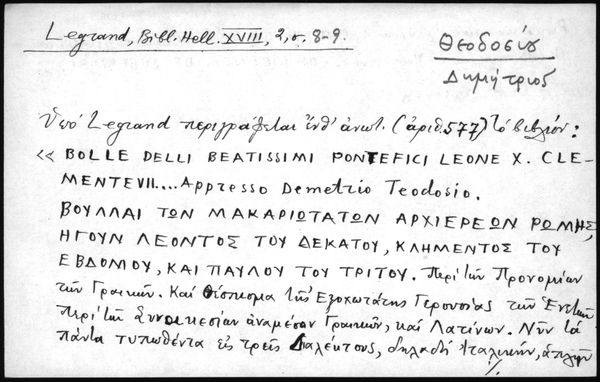 Legrand, Bibl. Hell. XVIII, 2, σ. 8-9.
Θεοδοσίου
Δημήτριος
Ὑπό Legrand περιγράφεται ἔνθ' ἀνωτ. (ἀριθ. 577) τό βιβλίον:
« BOLLE DELLI BEATISSIMI PONTEFICI LEONE X. CLE-
MENTE VII.... Appresso Demetrio Teodosio.
ΒΟΥΛΛΑΙ ΤΩΝ ΜΑΚΑΡΙΩΤΑΤΩΝ ΑΡΧΙΕΡΕΩΝ ΡΩΜΗΣ,
ΗΓΟΥΝ ΛΕΟΝΤΟΣ ΤΟΥ ΔΕΚΑΤΟΥ, ΚΛΗΜΕΝΤΟΣ ΤΟΥ
ΕΒΔΟΜΟΥ, ΚΑΙ ΠΑΥΛΟΥ ΤΟΥ ΤΡΙΤΟΥ. Περί τῶν Προνομίων
τῶν Γραικῶν. Καί Θέσπισμα τῆς Ἐξοχωτάτης Γερουσίας τῶν Ἑνετῶν
Περί τῶν Συνοικεσίων ἀναμέσον Γραικῶν, καί Λατίνων. Νῦν τά
πάντα τυπωθέντα εἰς τρεῖς Διαλέκτους, δηλαδή Ἰταλικήν, ἁπλῆν
·/.